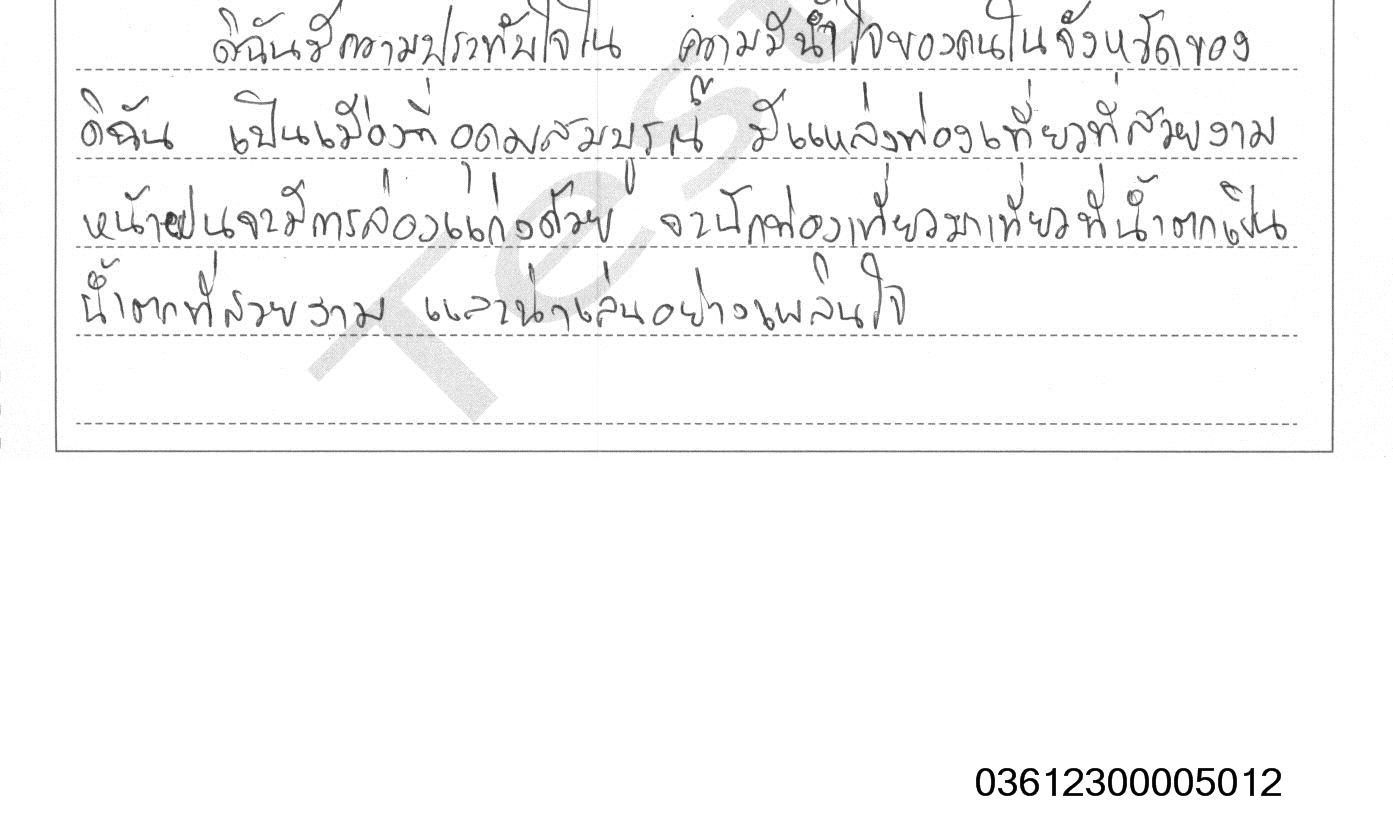 ดิฉันมีความประทับใจใน ความมีน้ำใจของคนในจังหวัดของ
ดิฉัน เป็นเมืองที่อุดมสมบูรณ์ มีแหล่งท่องเที่ยวที่สวยงาม
หน้าฝนจะมีการล่องแก่งด้วย จะนักท่องเที่ยวมาเที่ยวที่น้ำตกเป็น
น้ำตกที่สวยงาม และน่าเล่นอย่างเพลินใจ
Test
03612300005012